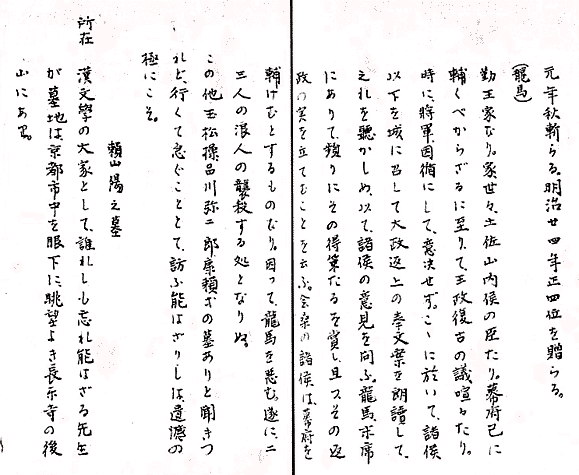 元年秋斬らる。明治廿四年正四位を贈らる。
(龍馬)
勤王家なり。家世々、土佐山内侯の臣たり。幕府已に
輔くべからざるに至りて、王政復古の議、喧々たり。
時に、將軍、因循にして、意決せず。こゝに於いて、諸侯
以下を城に召して大政返上の奉文案を朗讀して、
之れを聽かしめ、以て、諸侯の意見を問ふ。龍馬、末席
にありて、頻りにその得策たるを賞し、且つ、その返
政の実を立てむことを云ふ。会桑の諸侯は、幕府を
輔けむとするものなり。因って、龍馬を悪む。遂に、二
三人の浪人の襲殺する処となりぬ。
この他、玉松操、品川弥二郎、廉頼の墓ありと聞きつ
れど、行くて急ぐこととて、訪ふ能はざりしは、遺憾の
極にこそ。
頼山陽之墓
所在 漢文學の大家として、誰れしも忘れ能はざる先生
が墓地は、京都市中を眼下に眺望よき長楽寺の後
山にあり。